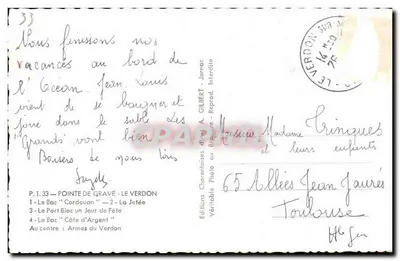 33
Nous finissons nos
vacances au bord de
l'Ocean. Jean Louis
vient de se baigner et
joue dans le sable. Les
"Grands" vont bien
Bonsers de nous tous
Suzely
P.1.33 - POINTE DE GRAVE - LE VERDON
1 - Le Bac "Cordouan" - 2 - La Jetée
3 - Le Port Bloc un Jour de Fête
4 - Le Bac "Côte d'Argent"
Au centre : Armes du Verdon
Editions Charentaises A. GILBERT - Jarnac
Véritable Photo au - Reprod. Interdite
LE VERDON SUR
14 H30
Monsieur Madame Tringues
et leurs enfants
65 Allées Jean Jaurés
Toulouse
Hte Gar
CPARAMA